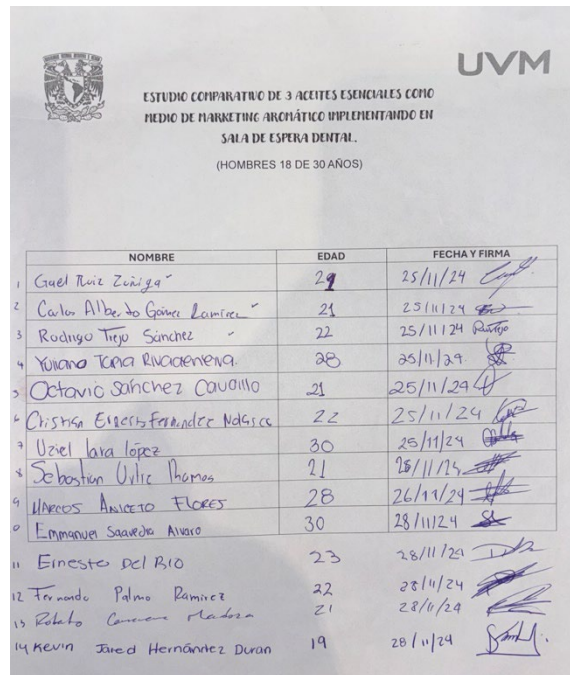 UVM
ESTUDIO COMPARATIVO DE 3 ACEITES ESENCIALES COMO
MEDIO DE MARKETING AROMÁTICO IMPLEMENTANDO EN
SALA DE ESPERA DENTAL.
(HOMBRES 18 DE 30 AÑOS)
NOMBRE EDAD FECHA Y FIRMA
1 Gael Ruiz Zuñiga 25/11/24
2 Carlos Alberto Gómez Ramirez 21 25/11/24
3 Rodrigo Trejo Sánchez 22 25/11/24
4 Tapia 28 25/11/24
5 Octavio Sánchez 21 25/11/24
6 Cristian Ernesto Fernandez 22 25/11/24
7 Uziel lara lópez 30 25/11/24
8 Sebastian Ramos 21
9 MARCOS ANICETO FLORES 28 26/11/24
0 Emmanuel Saavedra Alvaro 30 28/11/24
11 Ernesto Del RIO 23 28/11/24
12 Fernando Palmo Ramirez 22 28/11/24
13 21 28/11/24
14 Kevin Jared Hernández Duran 19 28/11/24